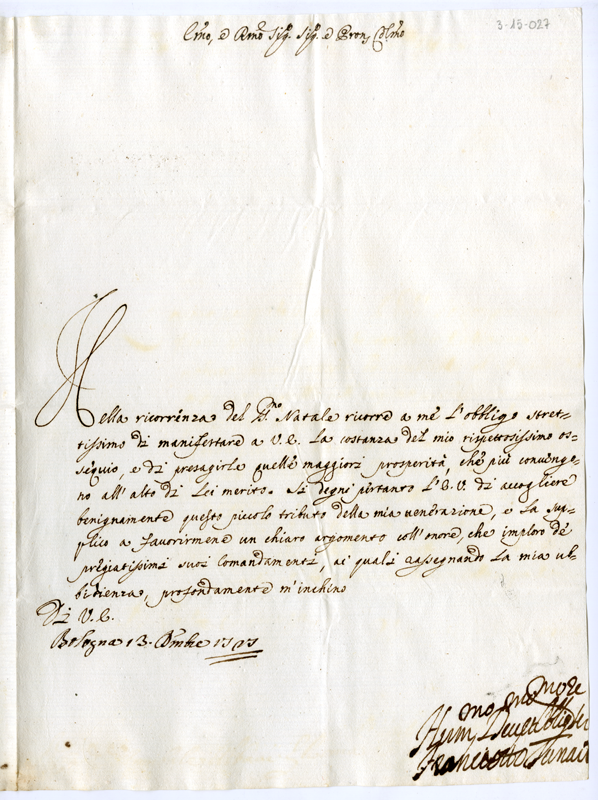 3-15-027
Emo, e Rmo Sigr. Sigr. e Pron. Colmo
Nella ricorrenza del Smo Natale ricorre a me l'obbligo stret-
tissimo di manifestare a V. E. la costanza del mio rispettosissimo os-
sequio, e di presagirle quelle maggiori prosperità, che più convengo-
no all' alto di Lei merito. Si degni pertanto l'E. V. di accogliere
benignamente questo piccolo tributo della mia venerazione, e la sup-
plico a favorirmene un chiaro argomento coll' onore, che imploro de'
pregiatissimi suoi Comandamenti, ai quali rassegnando la mia ub-
bidienza, profondamente m'inchino
Di V. E.
Bologna 13. Dmbre
mo mo more
Hum Dev Obblig
Francesco